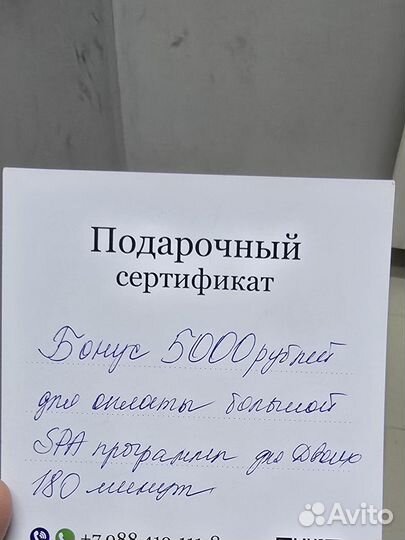 Подарочный
сертификат
Бонус 5000 рублей
для оплаты большой
SPA программы для двоих
180 минут
+7 988 419-111-8
Avito